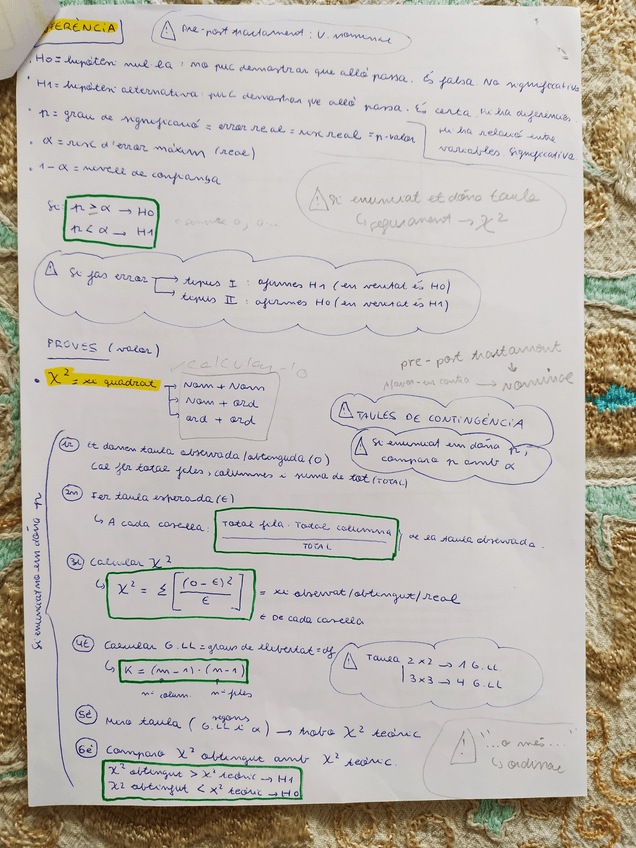 INFERÈNCIA
⚠ Pre-post tractament: V. nominal
· H0 = hipòtesi nul·la: no puc demostrar que allò passa. És falsa. No significativa
· H1 = hipòtesi alternativa: puc demostrar que allò passa. És certa. Hi ha diferències.
Hi ha relació entre variables. Significativa.
· p = grau de significació = error real = risc real = p-valor
· α = risc d'error màxim (real)
· 1-α = nivell de confiança
Si: p ≥ α → H0
p < α → H1
⚠ Si enunciat et dóna taula
↳ segurament → χ²
⚠ Si fas error → tipus I: afirmes H1 (en veritat és H0)
→ tipus II: afirmes H0 (en veritat és H1)
PROVES (valor)
pre-post tractament
↓
A favor-en contra → nominal
recalcular-lo
· χ² = xi quadrat → Nom + Nom
→ Nom + ord
→ ord + ord
⚠ TAULES DE CONTINGÈNCIA
⚠ Si enunciat em dóna p, comparo p amb α
Si enunciat no em dóna p
1r Et donen taula observada/obtinguda (O)
Cal fer total files, columnes i suma de tot (TOTAL)
2n Fer taula esperada (E)
↳ A cada casella: Total fila · Total columna / TOTAL } de la taula observada.
3r Calcular χ²
↳ χ² = Σ [(O-E)² / E] = xi observat/obtingut/real
E de cada casella
4t Calcular G.LL = graus de llibertat = df
↳ K = (m-1)·(n-1)
nº colum. nº files
⚠ Taula 2x2 → 1 G.LL
3x3 → 4 G.LL
5è Miro taula (segons G.LL i α) → trobo χ² teòric
6è Comparo χ² obtingut amb χ² teòric.
χ² obtingut > χ² teòric → H1
χ² obtingut < χ² teòric → H0
⚠ "...o més..."
↳ ordinal